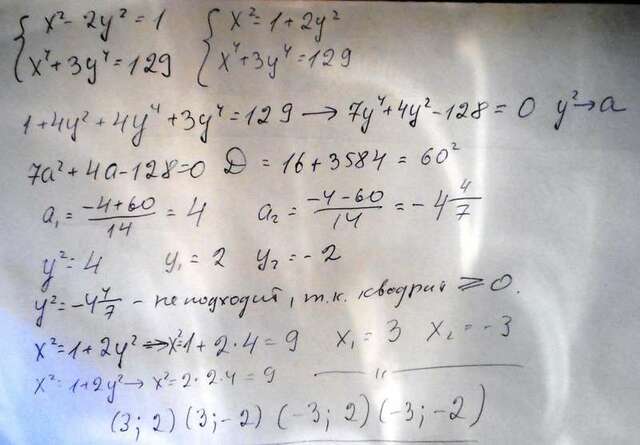 { x² - 2y² = 1 { x² = 1 + 2y²
{ x⁴ + 3y⁴ = 129 { x⁴ + 3y⁴ = 129
1 + 4y² + 4y⁴ + 3y⁴ = 129 → 7y⁴ + 4y² - 128 = 0 y² → a
7a² + 4a - 128 = 0 D = 16 + 3584 = 60²
a₁ = (-4+60)/14 = 4 a₂ = (-4-60)/14 = -4 4/7
y² = 4 y₁ = 2 y₂ = -2
y² = -4 4/7 - не подходит, т.к. квадрат ⩾ 0.
x² = 1 + 2y² ⇒ x² = 1 + 2·4 = 9 x₁ = 3 x₂ = -3
x² = 1 + 2y² → x² = 2·2·4 = 9 — " —
(3; 2) (3; -2) (-3; 2) (-3; -2)